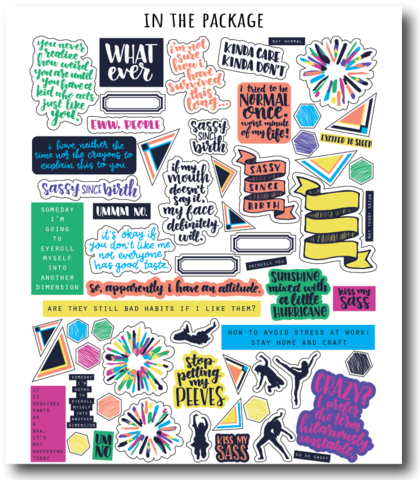 IN THE PACKAGE
you never
realize
how weird
you are until
you have a
kid who acts
just like
you.
WHAT
ever
i'm not
sure
how i
have
survived
this
long...
KINDA CARE,
KINDA DON'T
NOT NORMAL
i tried to be
NORMAL
once.
worst minute
of my life!
EWW, PEOPLE
SASSY
SINCE
birth
EXCITED TO SLEEP
i have neither the
time nor the crayons to
explain this to you.
if my
mouth
doesn't
say it,
my face
definitely
will.
SASSY
SINCE
BIRTH
SASSY SINCE birth
SOMEDAY
I'M
GOING
TO
EYEROLL
MYSELF
INTO
ANOTHER
DIMENSION
UMMM NO.
it's okay if
you don't like me
not everyone
has good taste.
UNIQUELY YOU
NOT TODAY SATAN
so, apparently i have an attitude.
SUNSHINE
mixed with
a little
HURRICANE
kiss my
SASS
ARE THEY STILL BAD HABITS IF I LIKE THEM?
HOW TO AVOID STRESS AT WORK:
STAY HOME AND CRAFT
stop
petting
my
PEEVES
SOMEDAY
I'M GOING
TO
EYEROLL
MYSELF
INTO
ANOTHER
DIMENSION
IF
IT
REQUIRES
PANTS
OR
A
BRA,
IT'S
NOT
HAPPENING
TODAY
UM
NO
KISS MY
SASS
CRAZY?
i prefer
the term
hilariously
unstable.
SO SO SASSY